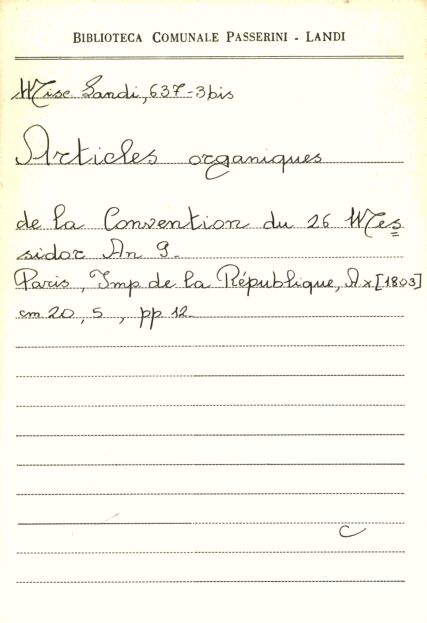 BIBLIOTECA COMUNALE PASSERINI - LANDI
Misc. Landi, 637-3bis
Articles organiques
de la Convention du 26 Mes=
sidor An 9.
Paris, Imp de la République, A x [1803]
cm 20,5, pp. 12.
C